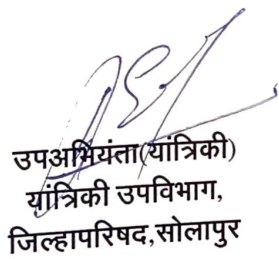 उपअभियंता(यांत्रिकी)
यांत्रिकी उपविभाग,
जिल्हापरिषद,सोलापुर